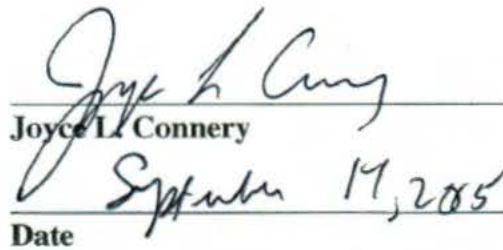 Joyce L Connery
Joyce L. Connery
September 14, 2015
Date